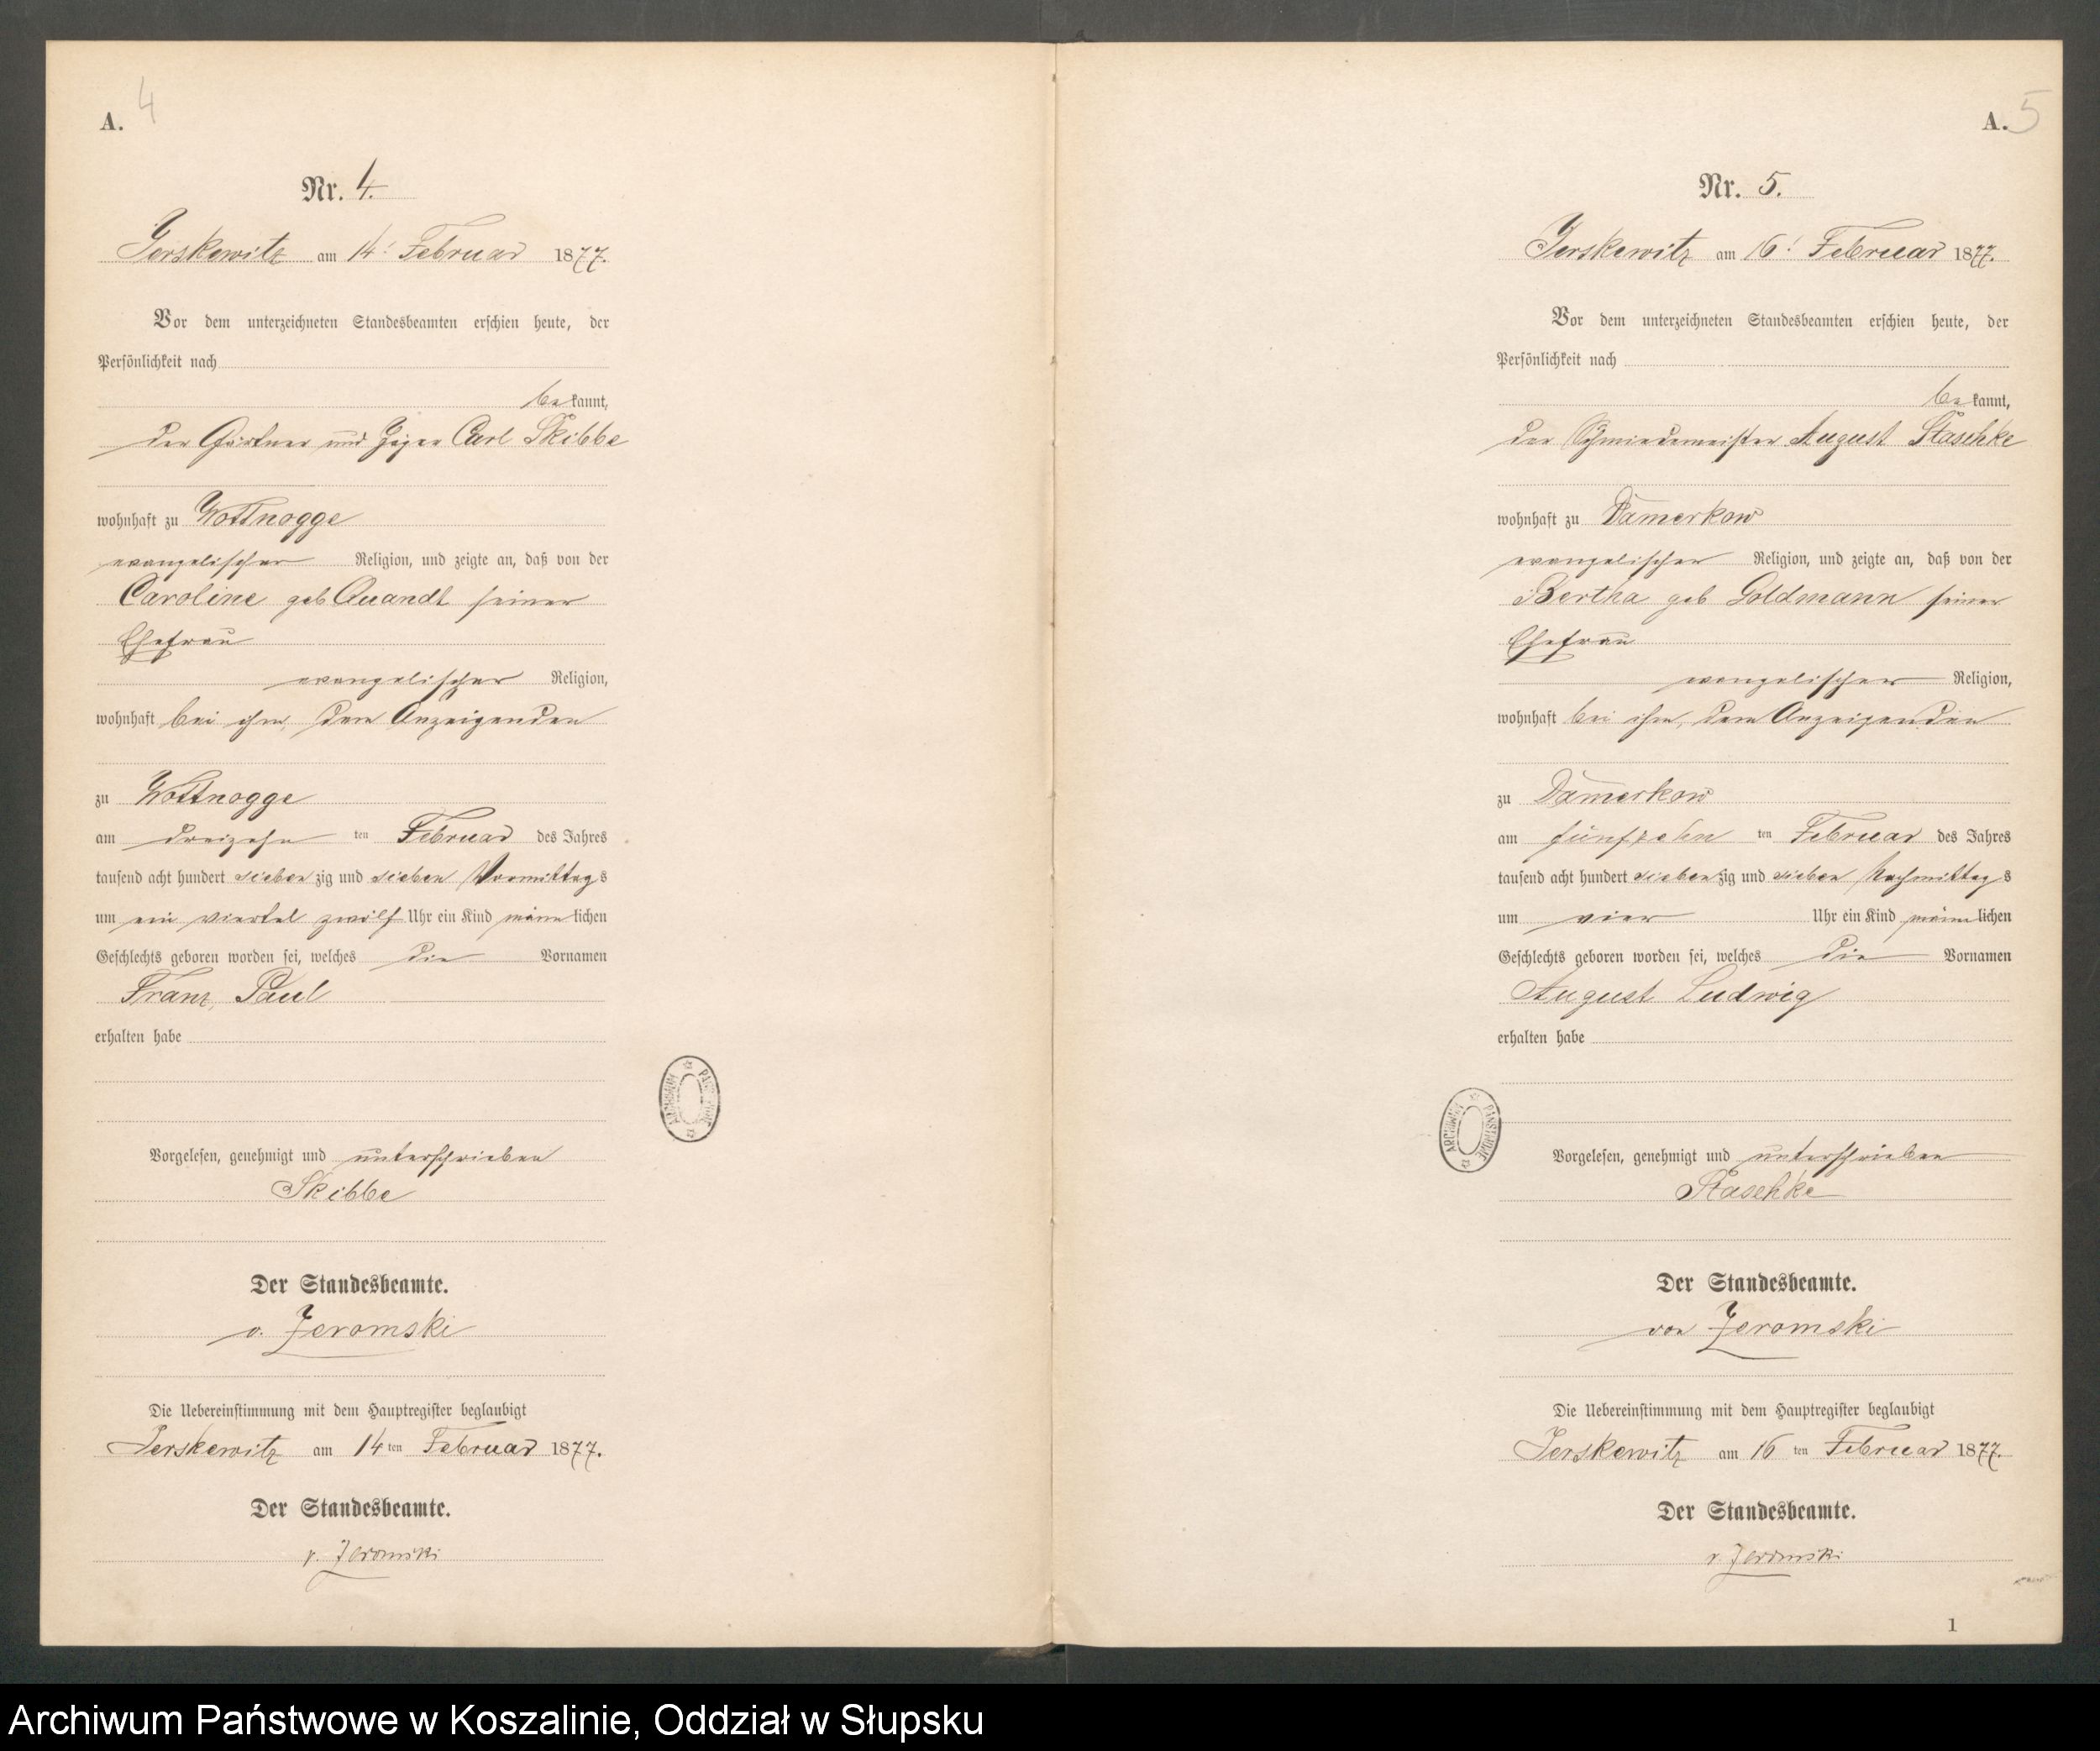 4
A.
Nr. 4.
Jerskewitz am 14t Februar 1877.
Vor dem unterzeichneten Standesbeamten erschien heute, der
Persönlichkeit nach
bekannt,
der Gärtner und Jäger Carl Skibbe
wohnhaft zu Wottnogge
evangelischer Religion, und zeigte an, daß von der
Caroline geb Quandt seiner
Ehefrau
evangelischer Religion,
wohnhaft bei ihm, dem Anzeigenden
zu Wottnogge
am dreizehn ten Februar des Jahres
tausend acht hundert siebenzig und sieben Vormittags
um ein viertel zwölf Uhr ein Kind männlichen
Geschlechts geboren worden sei, welches die Vornamen
Franz, Paul
erhalten habe
Vorgelesen, genehmigt und unterschrieben
Skibbe
Der Standesbeamte.
v. Jeromski
Die Uebereinstimmung mit dem Hauptregister beglaubigt
Jerskewitz am 14ten Februar 1877.
Der Standesbeamte.
v. Jeromski
ARCHIWUM PAŃSTWOWE
5
A.
Nr. 5.
Jerskewitz am 16t Februar 1877.
Vor dem unterzeichneten Standesbeamten erschien heute, der
Persönlichkeit nach
bekannt,
der Schmiedemeister August Staschke
wohnhaft zu Damerkow
evangelischer Religion, und zeigte an, daß von der
Bertha geb Goldmann seiner
Ehefrau
evangelischer Religion,
wohnhaft bei ihm, dem Anzeigenden
zu Damerkow
am fünfzehn ten Februar des Jahres
tausend acht hundert siebenzig und sieben Nachmittags
um vier Uhr ein Kind männlichen
Geschlechts geboren worden sei, welches die Vornamen
August Ludwig
erhalten habe
Vorgelesen, genehmigt und unterschrieben
Staschke
Der Standesbeamte.
von Jeromski
Die Uebereinstimmung mit dem Hauptregister beglaubigt
Jerskewitz am 16 ten Februar 1877.
Der Standesbeamte.
v. Jeromski
ARCHIWUM PAŃSTWOWE
1
Archiwum Państwowe w Koszalinie, Oddział w Słupsku